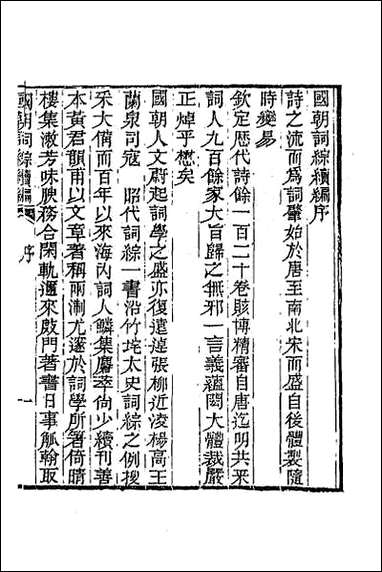 國朝詞綜續編序
詩之流而爲詞肇始於唐至南北宋而盛自後體製隨
時變易
欽定歷代詩餘一百二十卷賅博精審自唐迄明共釆
詞人九百餘家大旨歸之無邪一言義蘊閎大體裁嚴
正焯乎懋矣
國朝人文蔚起詞學之盛亦復遠軼張柳近淩楊高王
蘭泉司寇 昭代詞綜一書沿竹垞太史詞綜之例搜
釆大備而百年以來海內詞人鱗集麕萃尙少續刊善
本黃君韻甫以文章著稱兩淛尤邃於詞學所著倚晴
樓集潄芳味腴務合閑軌邇來啟門著書日事觚翰取
國朝詞綜續編 序 一